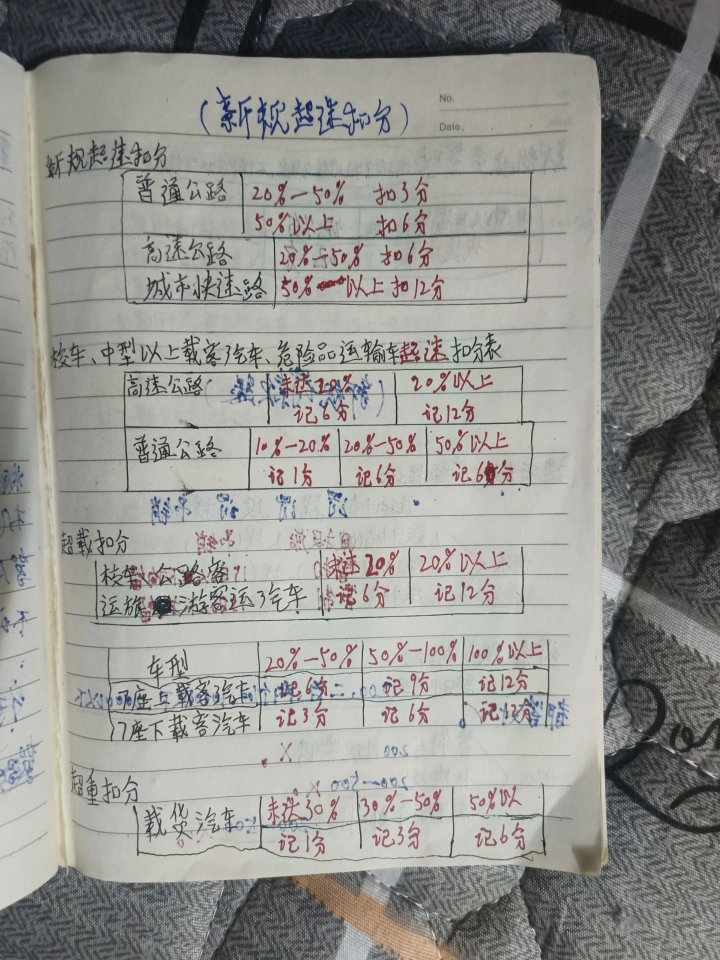 No.
Date.
(新规超速扣分)
新规超速扣分
普通公路 20%—50% 扣3分
50%以上 扣6分
高速公路 20%—50% 扣6分
城市快速路 50%以上扣12分
校车、中型以上载客汽车、危险品运输车超速扣分表
高速公路 未达20% 20%以上
记6分 记12分
普通公路 10%—20% 20%—50% 50%以上
记1分 记6分 记6分
超载扣分
校车 公路客 未达20% 20%以上
运旅游客运汽车 记6分 记12分
车型 20%—50% 50%—100% 100%以上
7座上载客汽车 记6分 记9分 记12分
7座下载客汽车 记3分 记6分 记12分
超重扣分
载货汽车 未达30% 30%—50% 50%以
记1分 记3分 记6分